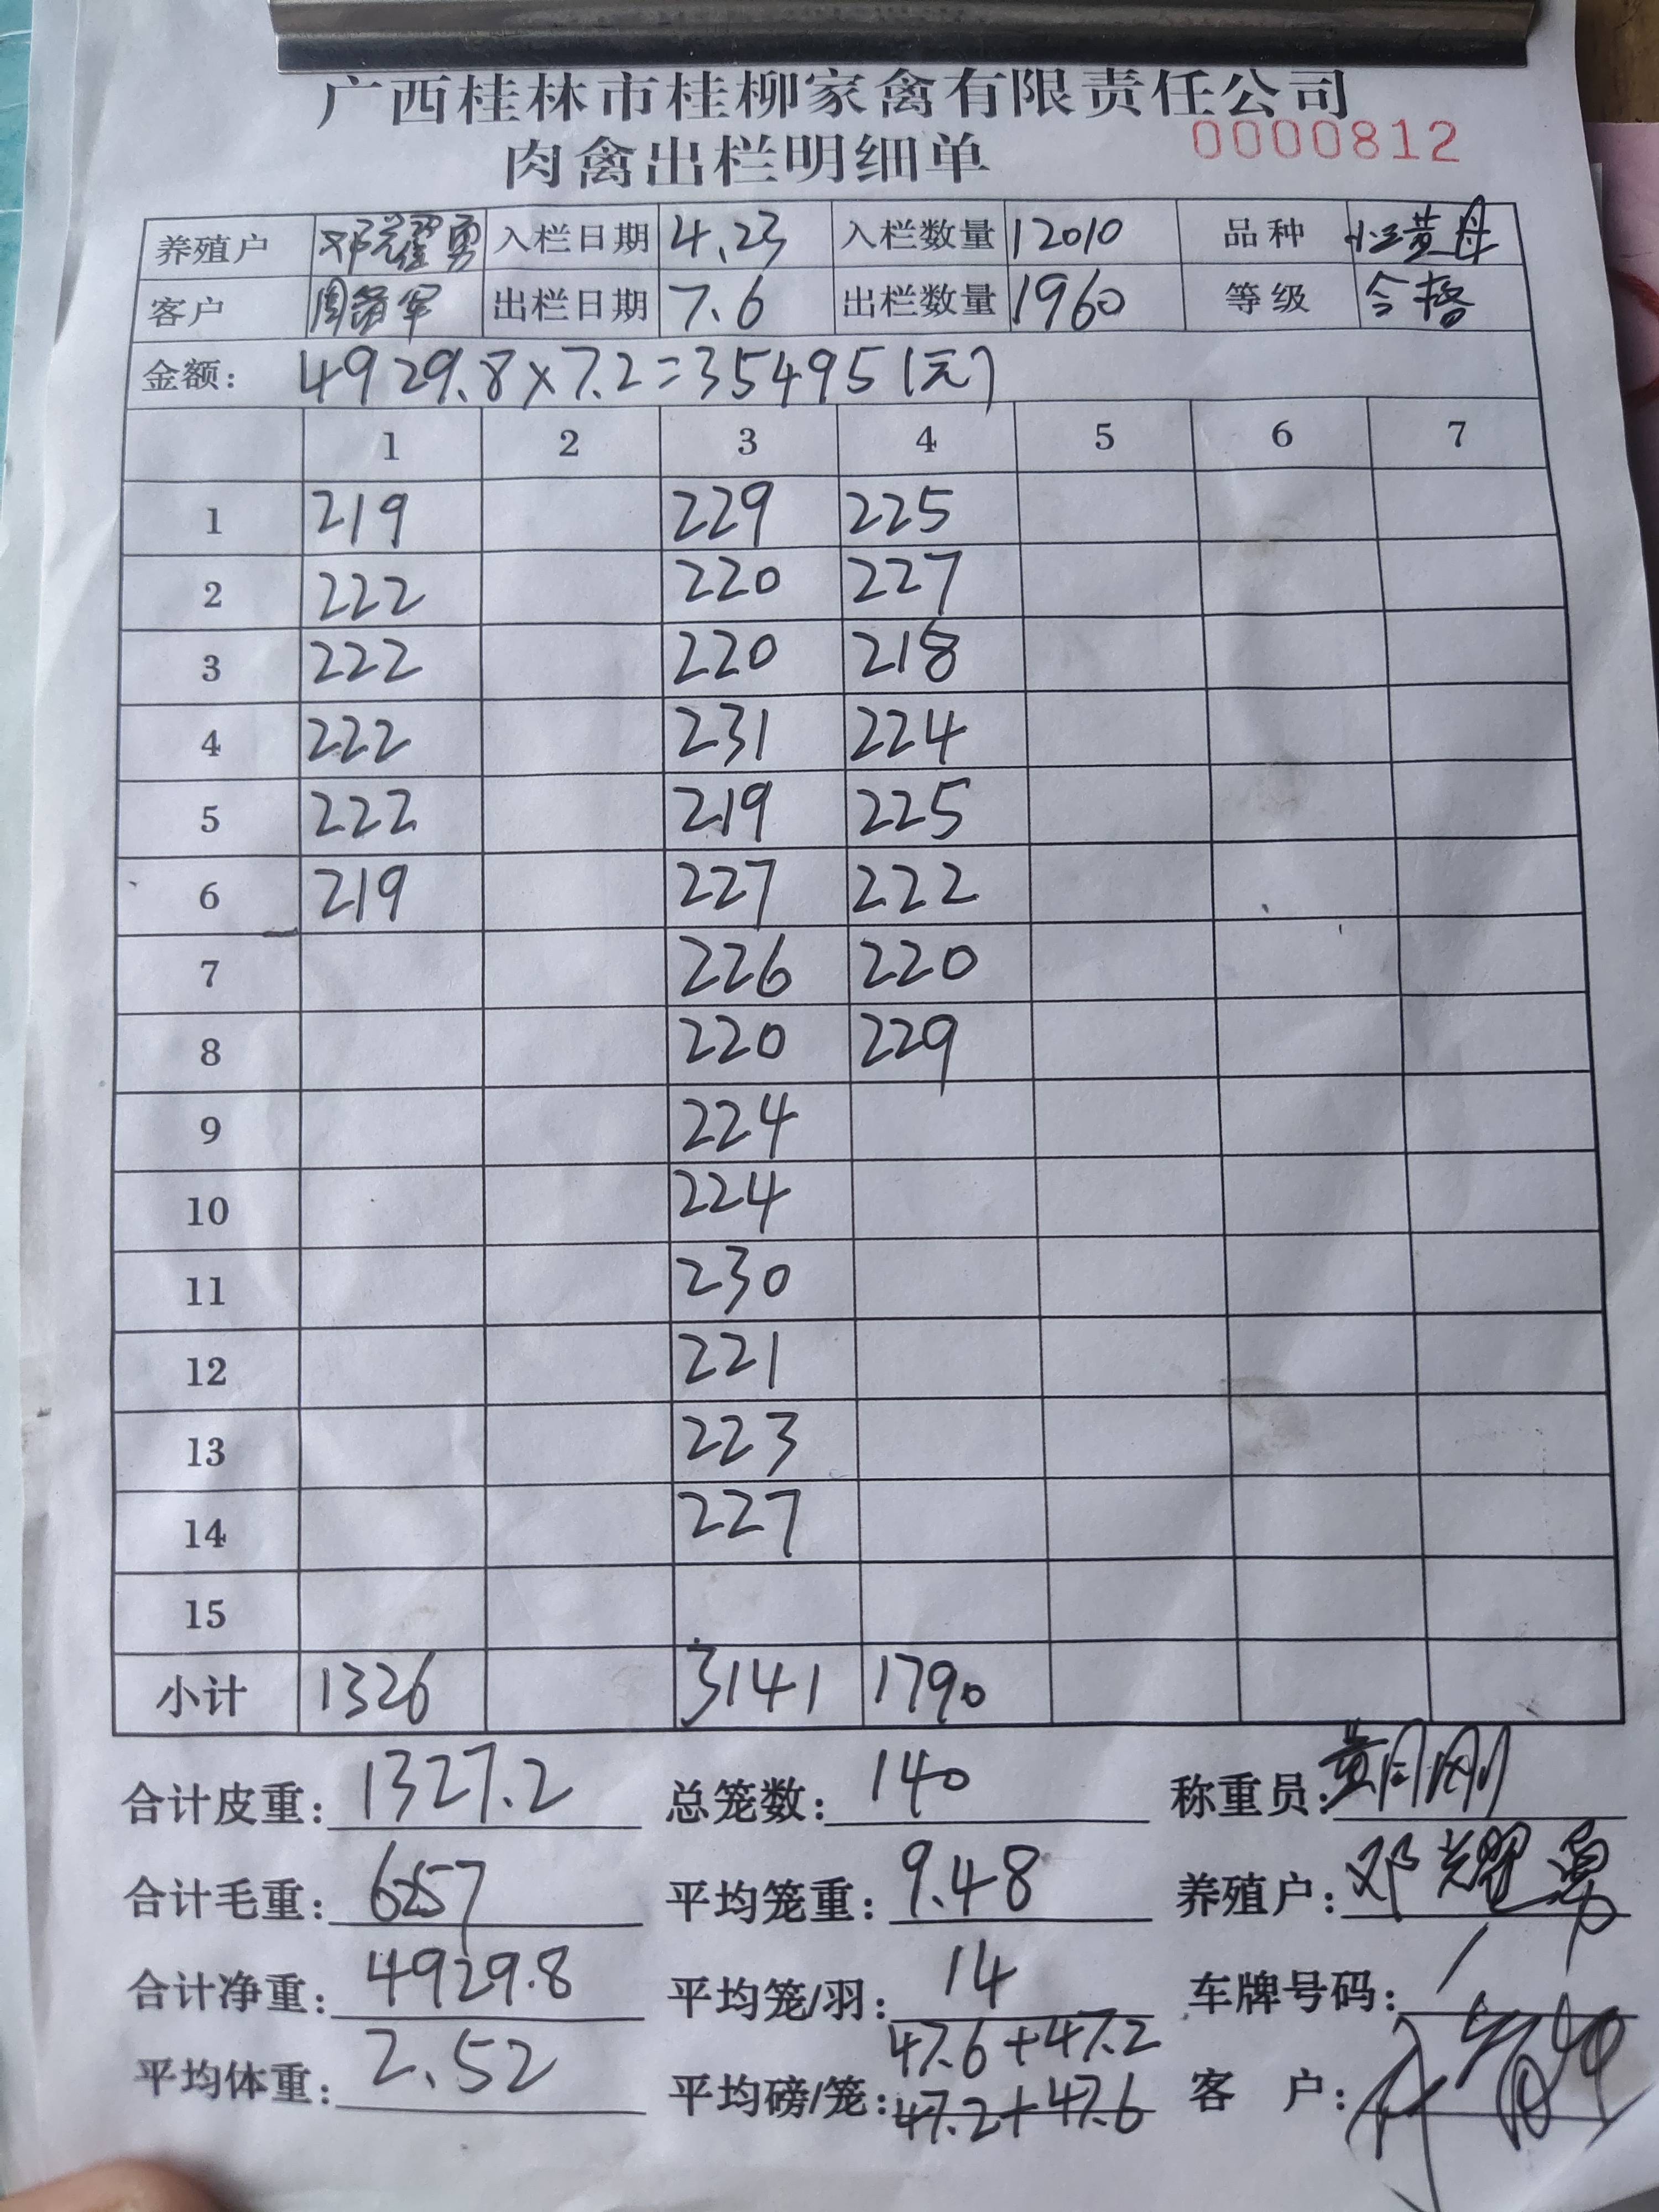 广西桂林市桂柳家禽有限责任公司
肉禽出栏明细单
0000812
养殖户 邓耀勇 入栏日期 4.23 入栏数量 12010 品种 黄
客户 军 出栏日期 7.6 出栏数量 1960 等级 合格
金额: 4929.8×7.2=35495(元)
1 2 3 4 5 6 7
1 219 229 225
2 222 220 227
3 222 220 218
4 222 231 224
5 222 219 225
6 219 227 222
7 226 220
8 220 229
9 224
10 224
11 230
12 221
13 223
14 227
15
小计 1326 3141 1790
合计皮重: 1327.2 总笼数: 140 称重员: 黄刚
合计毛重: 6257 平均笼重: 9.48 养殖户: 邓耀勇
合计净重: 4929.8 平均笼/羽: 14 车牌号码: /
平均体重: 2.52 平均磅/笼: 47.6+47.2
47.2+47.6 客 户: